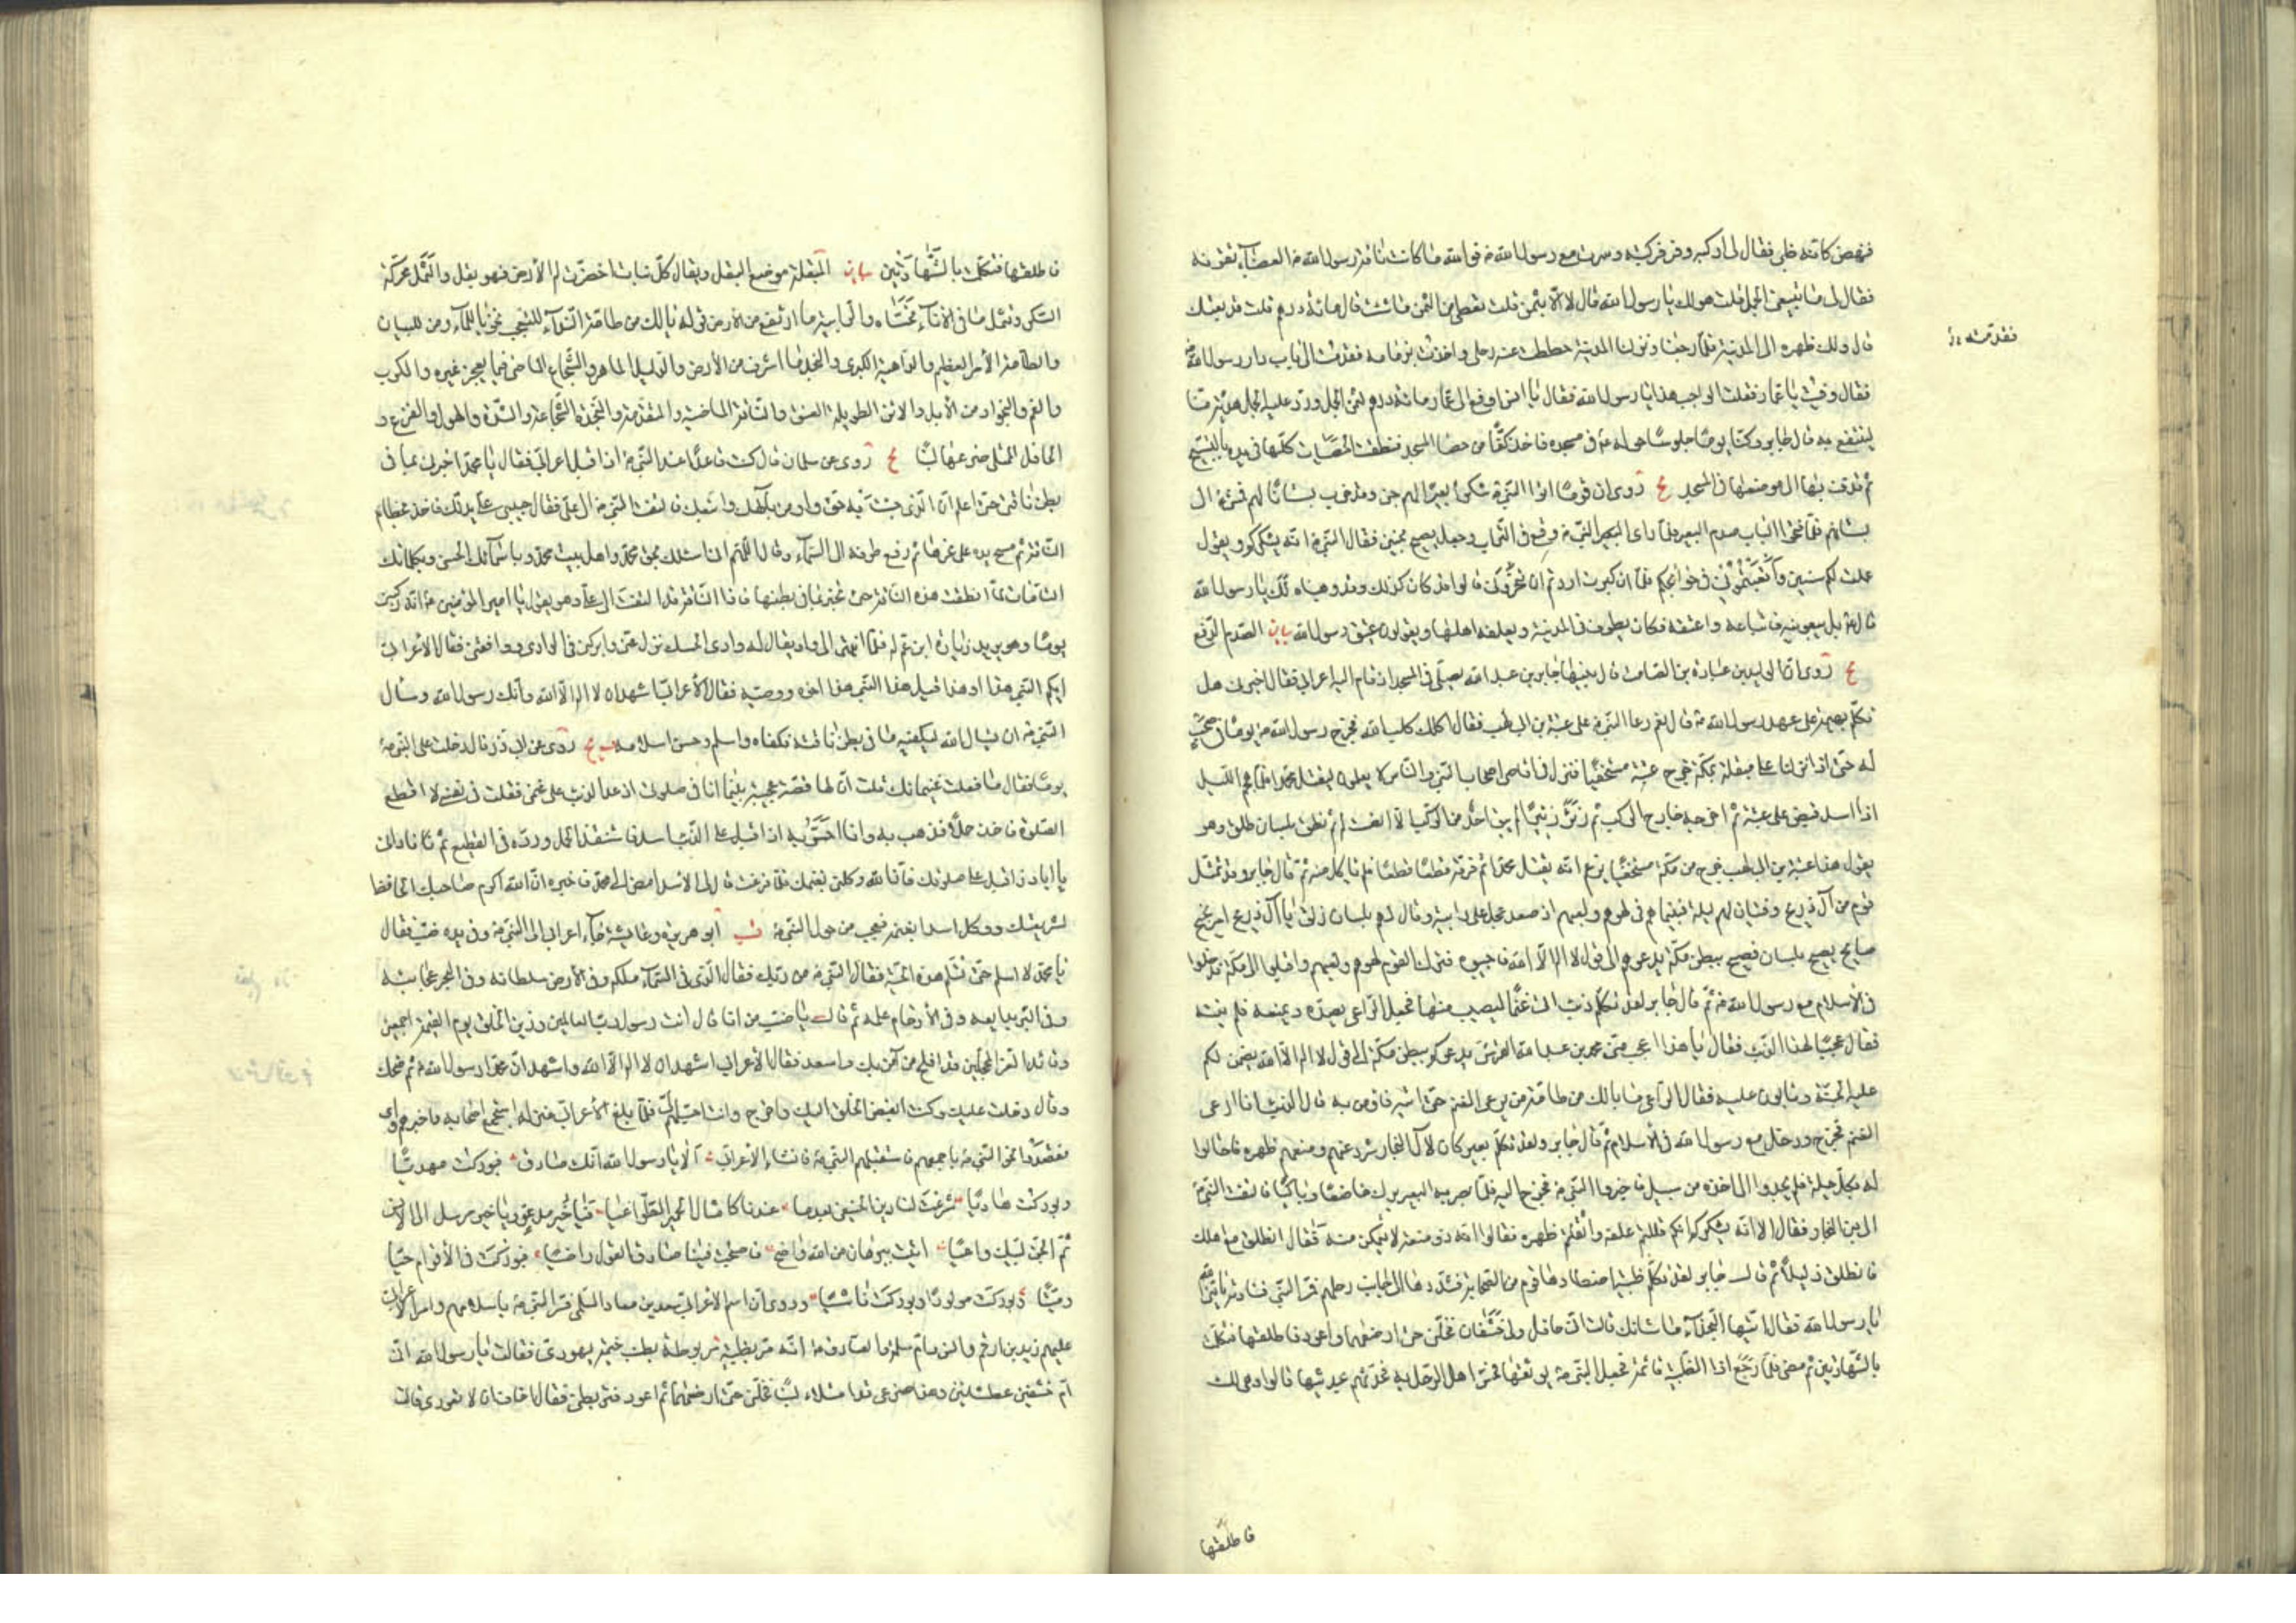 فنهض كأنه ظبي فقال لي اركبه وفز فركبته وسرت مع رسول الله ص فوالله ما كانت ناقة رسول الله ص العضباء تفوته
فقال لي ما تبيعني الجمل قلت هو لك يا رسول الله قال لا الا بثمن قلت تعطي من الثمن ما شئت قال مائة درهم قلت قد بعتك
قال ولك ظهره الى المدينة فلما رجعنا ونزلنا المدينة حططت عنه رحلي واخذت بزمامه فقدمت الى باب دار رسول الله ص
فقدمته
فقال وفيت يا عمار فقلت الواجب هذا يا رسول الله فقال يا انس ادفع الى عمار مائة درهم ثمن الجمل ورد عليه الجمل هدية منا
لينتفع به قال جابر وكنا يوما جلوسا حوله ص في مسجده فاخذ كفا من حصا المسجد فنطقت الحصيات كلها في يده بالتسبيح
ثم قذف بها الى موضعها في المسجد يج روى ان قوما اتوا النبي ص شكوا بعيرا لهم جن وقد خرب بستانا لهم فمشى الى
بستانهم فلما فتحوا الباب صدم البعير فلما راى البعير النبي ص وقع في التراب وجعل يصيح بحنين فقال النبي ص انه يشكوكم ويقول
عملت لكم سنين واتعبتموني في حوائجكم فلما ان كبرت اردتم ان تنحروني قالوا قد كان كذلك وقد وهبناه لك يا رسول الله
قال ص بل بيعونيه فاشتراه واعتقه فكان يطوف في المدينة ويعلفه اهلها ويقولون عتيق رسول الله بيان الصدم الدفع
يج روى ان الوليد بن عبادة بن الصامت قال بينما جابر بن عبد الله يصلي في المسجد اذ قام اليه اعرابي فقال اخبرني هل
تكلم بهيمة على عهد رسول الله ص قال نعم دعا النبي ص على عتبة بن ابي لهب فقال اكلك كلب الله فخرج رسول الله ص يوما في صحب
له حتى اذا نزلنا على مبقلة بمكة خرج عتبة مستخفيا فنزل في اقاصي اصحاب النبي والناس لا يعلمون ليقتل محمدا فلما هجم الليل
اذا اسد قبض على عتبة ثم اخرجه خارج الركب ثم زئر زئيرا لم يبق احد من الركب الا انصت له ثم نطق بلسان طلق وهو
يقول هذا عتبة بن ابي لهب خرج من مكة مستخفيا يزعم انه يقتل محمدا ثم مزقه قطعا قطعا فلم ياكل منه ثم قال جابر وقد تمثل
قوم من آل ذريح وفتيان لهم ليلة فبينا هم في لهوهم ولعبهم اذ صعد عجل على رابية وقال لهم بلسان ذلق يا آل ذريح امر نجيح
صايح يصيح بلسان فصيح ببطن مكة يدعوكم الى قول لا اله الا الله فاجيبوه فترك القوم لهوهم ولعبهم واقبلوا الى مكة فدخلوا
في الاسلام مع رسول الله ص ثم قال جابر لقد تكلم ذئب اتى غنما ليصيب منها فجعل الراعي يصده ويمنعه فلم ينته
فقال عجبا لهذا الذئب فقال يا هذا اعجب مني محمد بن عبد الله القرشي يدعوكم ببطن مكة الى قول لا اله الا الله يضمن لكم
عليه الجنة وتابون عليه فقال الراعي يا لك من طامة من يرعى الغنم حتى آتيه فاومن به قال الذئب انا ارعى
الغنم فخرج ودخل مع رسول الله في الاسلام ثم قال جابر ولقد تكلم بعير كان لآل النجار شرد عنهم ومنعهم ظهره فاحتالوا
له بكل حيلة فلم يجدوا الى اخذه من سبيل فاخبروا النبي ص فخرج اليه فلما بصر به البعير برك خاضعا وباكيا فالتفت النبي ص
الى بني النجار فقال الا انه يشكوكم انكم قللتم علفه واثقلتم ظهره فقالوا انه ذو منعة لا يتمكن منه فقال انطلق مع اهلك
فانطلق ذليلا ثم قال جابر لقد تكلم ظبية اصطادها قوم من الصحابة فشدوها الى جانب رحلهم فمر النبي فنادته يا نبي الله
يا رسول الله فقال ايتها النجداء ما شانك قالت اني حافل ولي خشفان فخلني حتى ارضعهما واعود فاطلقها فتكلمت
بالشهادتين ثم مضى فلما رجع اذا الظبية قائمة فجعل النبي ص يوثقها فحس اهل الرحل به فحدثهم بحديثها قالوا وهي لك
فاطلقها
فاطلقها فتكلمت بالشهادتين بيان المبقلة موضع البقل ويقال كل نبات اخضرت له الارض فهو بقل والثمل محركة
السكر وثمل ما في الاناء تحساه والرابية ما ارتفع من الارض قوله يا لك من طامة النداء للتعجب نحو يا للماء ومن للبيان
والطامة الامر العظيم والداهية الكبرى والنجد ما اشرف من الارض والدليل الماهر والشجاع الماضي فيما يعجز غيره والكرب
والغم والنجواد من الابل والاتن الطويلة العنق والناقة الماضية والمتقدمة والنجدة الشجاعة والشدة والهول والفزع و
الحافل الممتلي ضرعها لبنا يج روى عن سلمان قال كنت قاعدا عند النبي ص اذ اقبل اعرابي فقال يا محمد اخبرني بما في
بطن ناقتي حتى اعلم ان الذي جئت به حق واومن بالهك واتبعك فالتفت النبي ص الى علي فقال حبيبي علي يدلك فاخذ بخطام
الناقة ثم مسح يده على نحرها ثم رفع طرفه الى السماء وقال اللهم اني اسئلك بحق محمد واهل بيت محمد وباسمائك الحسنى وبكلماتك
التامات لما انطقت هذه الناقة حتى تخبرنا بما في بطنها فاذا الناقة قد التفتت الى علي وهو يقول يا امير المؤمنين انه ركبني
يوما وهو يريد زيارة ابن عم له فلما انتهى الى واد يقال له وادي الحسك نزل عني وابركني في الوادي وواقعني فقال الاعرابي
ايكم النبي هذا او هذا قيل هذا النبي هذا اخوه ووصيه فقال الاعرابي اشهد ان لا اله الا الله وانك رسول الله وسأل
النبي ص ان يسأل الله ليكفيه ما في بطن ناقته فكفاه واسلم وحسن اسلامه يج روى عن ابي ذر قال دخلت على النبي ص
يوما فقال ما فعلت غنيماتك قلت ان لها قصة عجيبة بينما انا في صلوتي اذ عدا الذئب على غنمي فقلت في نفسي لا اقطع
الصلوة فاخذ حملا فذهب به وانا احس به اذ اقبل على الذئب اسد فاستنقذ الحمل ورده في القطيع ثم ناداني
يا ابا ذر اقبل على صلوتك فان الله وكلني بغنمك فلما فرغت قال لي الاسد امض الى محمد فاخبره ان الله اكرم صاحبك الحافظ
لشريعتك ووكل اسدا بغنمه فعجب من حول النبي ص قب ابو هريرة وعايشة جاء اعرابي الى النبي ص وفي يده ضب فقال
يا محمد لا اسلم حتى تسلم هذه الحية فقال النبي ص من ربك فقال الذي في السماء ملكه وفي الارض سلطانه وفي البحر عجائبه
وفي البر بدايعه وفي الارحام علمه ثم قال يا ضب من انا قال انت رسول رب العالمين وزين الخلق يوم القيمة اجمعين
وقائد الغر المحجلين قد افلح من آمن بك واسعد فقال الاعرابي اشهد ان لا اله الا الله واشهد ان محمدا رسول الله ثم ضحك
وقال دخلت عليك وكنت ابغض الخلق اليك واخرج وانت احبهم الي فلما بلغ الاعرابي منزله استجمع اصحابه فاخبرهم بما راى
فقصدوا نحو النبي ص باجمعهم فاستقبلهم النبي ص فانشا الاعرابي الا يا رسول الله انك صادق فبوركت مهديا
وبوركت هاديا شرعت لنا دين الحنيفي بعدما عبدنا كامثال الحمير الطواغيا فيا خير مدعو ويا خير مرسل الى الانس
ثم الجن لبيك داعيا اتيت ببرهان من الله واضح فاصبحت فينا صادق القول راضيا فبوركت في الاقوام حيا
وميتا وبوركت مولودا وبوركت ناشيا وروى ان اسم الاعرابي سعد بن معاذ السلمي فسر النبي ص باسلامهم وامر الاعرابي
عليهم زيد بن ارقم وانس وام سلمة والصادق ص انه مر بظبية مربوطة بطنب خيمة يهودي فقالت يا رسول الله اني
ام خشفين عطشانين وهذا ضرعي قد امتلاء لبنا فخلني حتى ارضعهما ثم اعود فتربطني فقال اخاف ان لا تعودي قالت